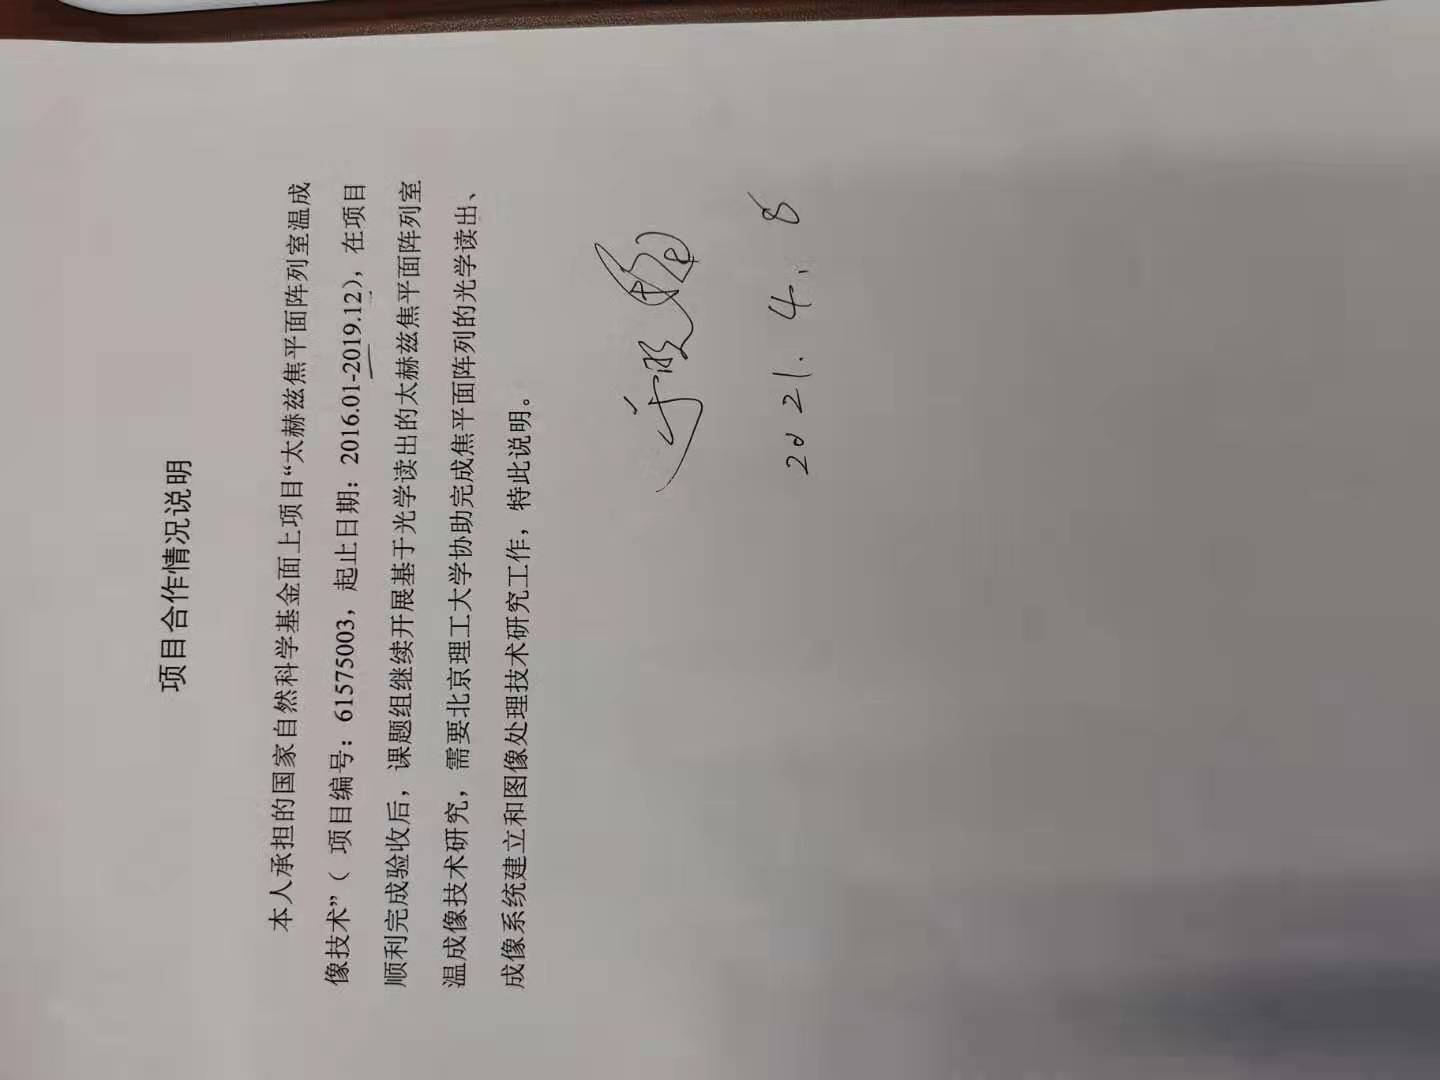 项目合作情况说明
本人承担的国家自然科学基金面上项目“太赫兹焦平面阵列室温成
像技术”（项目编号：61575003，起止日期：2016.01-2019.12），在项目
顺利完成验收后，课题组继续开展基于光学读出的太赫兹焦平面阵列室
温成像技术研究，需要北京理工大学协助完成焦平面阵列的光学读出、
成像系统建立和图像处理技术研究工作，特此说明。
2021.4.8